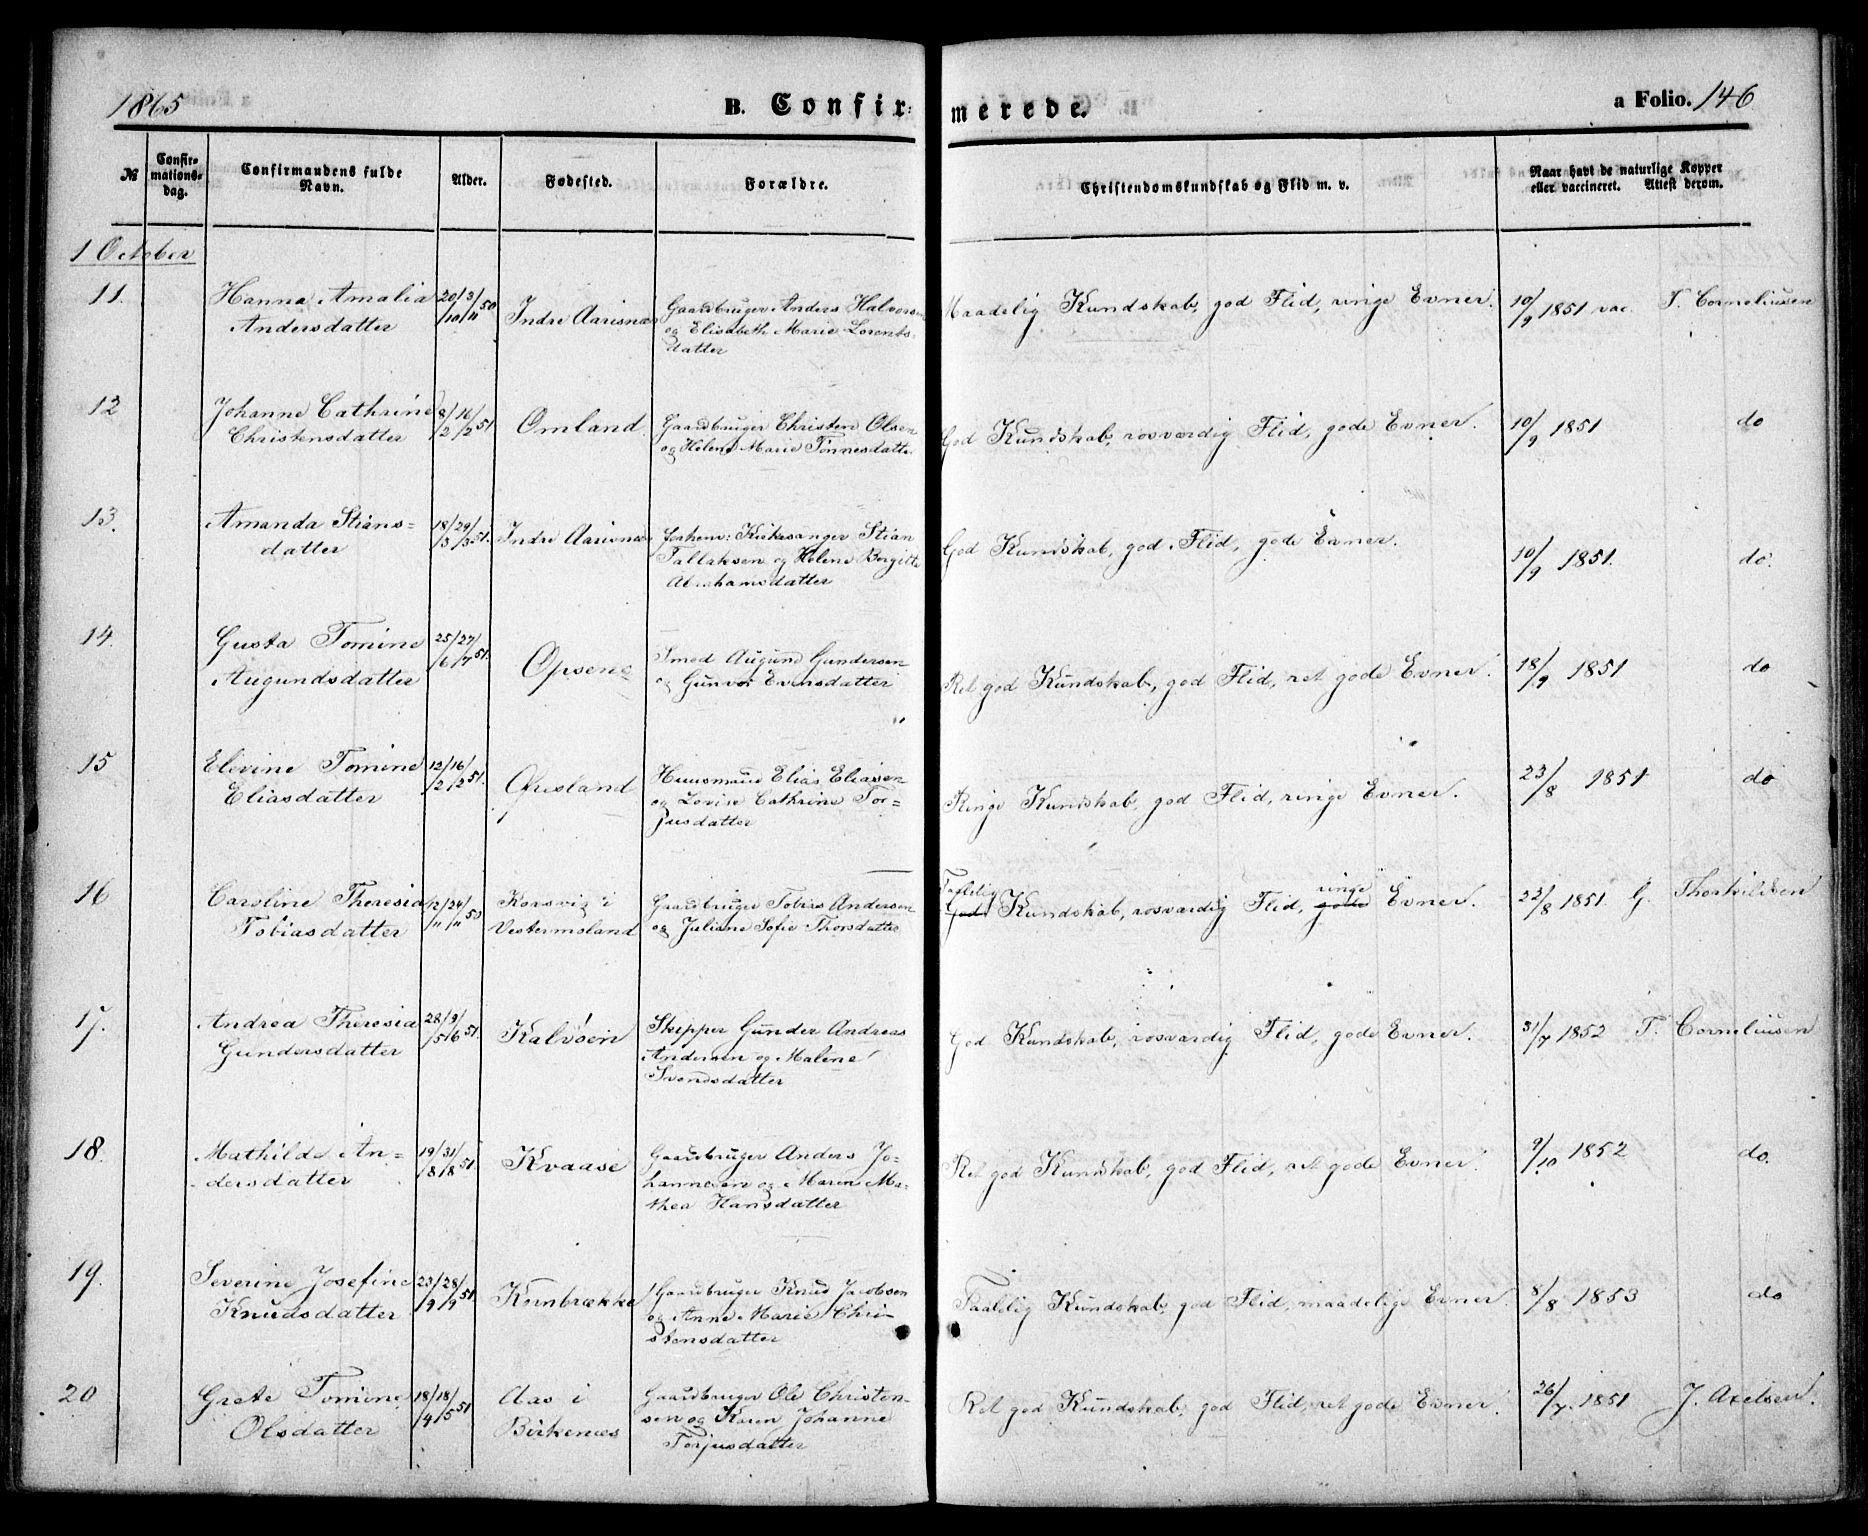 1865 B. Confirmerede. a Folio. 146
№ Confirmationsdag. Confirmandens fulde Navn. Alder. Fødested. Forældre. Christendomskundskab og Flid m. v. Naar havt de naturlige Kopper eller vaccineret. Attest derom.
1 October
11. Hanna Amalia 20/10 3/11 50 Indre Aarisnæs Gaardbruger Anders Halvorsen Maadelig Kundskab, god Flid, ringe Evner. 10/9 1851 vac. T. Corneliussen
Andersdatter og Elisabeth Marie Lorents-
datter
12 Johanne Cathrine 8/2 16/2 51 Omland Gaardbruger Christen Olsen God Kundskab, rosværdig Flid, gode Evner. 10/9 1851 do
Christensdatter og Helene Marie Tønnesdatter
13. Amanda Stians- 18/3 29/3 51. Indre Aarisnæs Kirkesanger Stian God Kundskab, god Flid, gode Evner. 10/9 1851. do.
datter Tallaksen og Helene Birgitte
Abrahamsdatter
14. Gusta Tomine 25/6 27/7 51. Opsene Smed Augund Gundersen Ret god Kundskab, god Flid, ret gode Evner. 18/9 1851 do
Augundsdatter og Gunvor Evensdatter
15 Elevine Tomine 12/2 16/2 51. Øresland Huusmand Elias Eliassen Ringe Kundskab, god Flid, ringe Evner. 23/8 1851 do
Eliasdatter og Lovise Cathrine Tor-
jusdatter
16 Caroline Theresia 12/11 24/11 50 Korsvig i Gaardbruger Tobias Andersen Taalelig God Kundskab, rosværdig Flid, ringe gode Evner. 22/8 1851. G. Thorkildsen
Tobiasdatter Vestermoland og Juliane Sofie Thorsdatter
17. Andrea Theresia 28/5 9/6 51. Kalvøen Skipper Gunder Andreas God Kundskab, rosværdig Flid, gode Evner. 31/7 1852 T. Corneliussen
Gundersdatter Andersen og Malene
Svendsdatter
18. Mathilde An- 19/8 31/8 51. Kvaase Gaardbruger Anders Jo- Ret god Kundskab, god Flid, ret gode Evner. 9/10 1852 do.
dersdatter hannesen og Maren Ma-
thea Hansdatter
19. Severine Josefine 23/9 28/9 51. Kornbrække Gaardbruger Knud Jacobsen Taalelig Kundskab, god Flid, maadelige Evner. 8/8 1853 do
Knudsdatter og Anne Marie Chri-
stensdatter
20 Grete Tomine 18/4 18/5 51 Aas i Gaardbruger Ole Christen- Ret god Kundskab, god Flid, ret gode Evner. 26/7. 1851 J. Axelsen.
Olsdatter Birkenæs sen og Karen Johanne
Torjusdatter